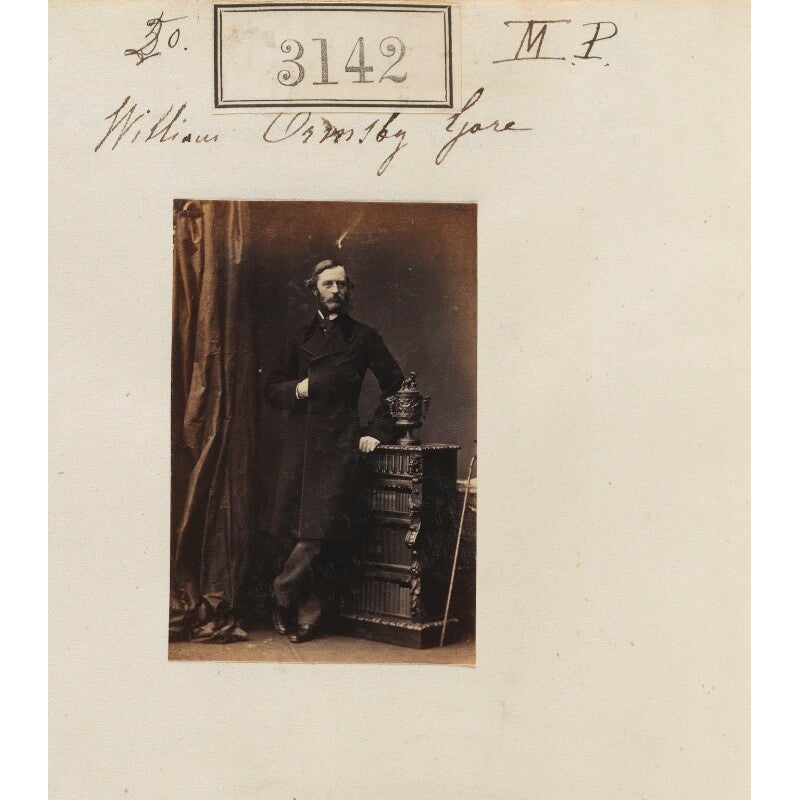 Do. 3142 M.P.
William Ormsby Gore